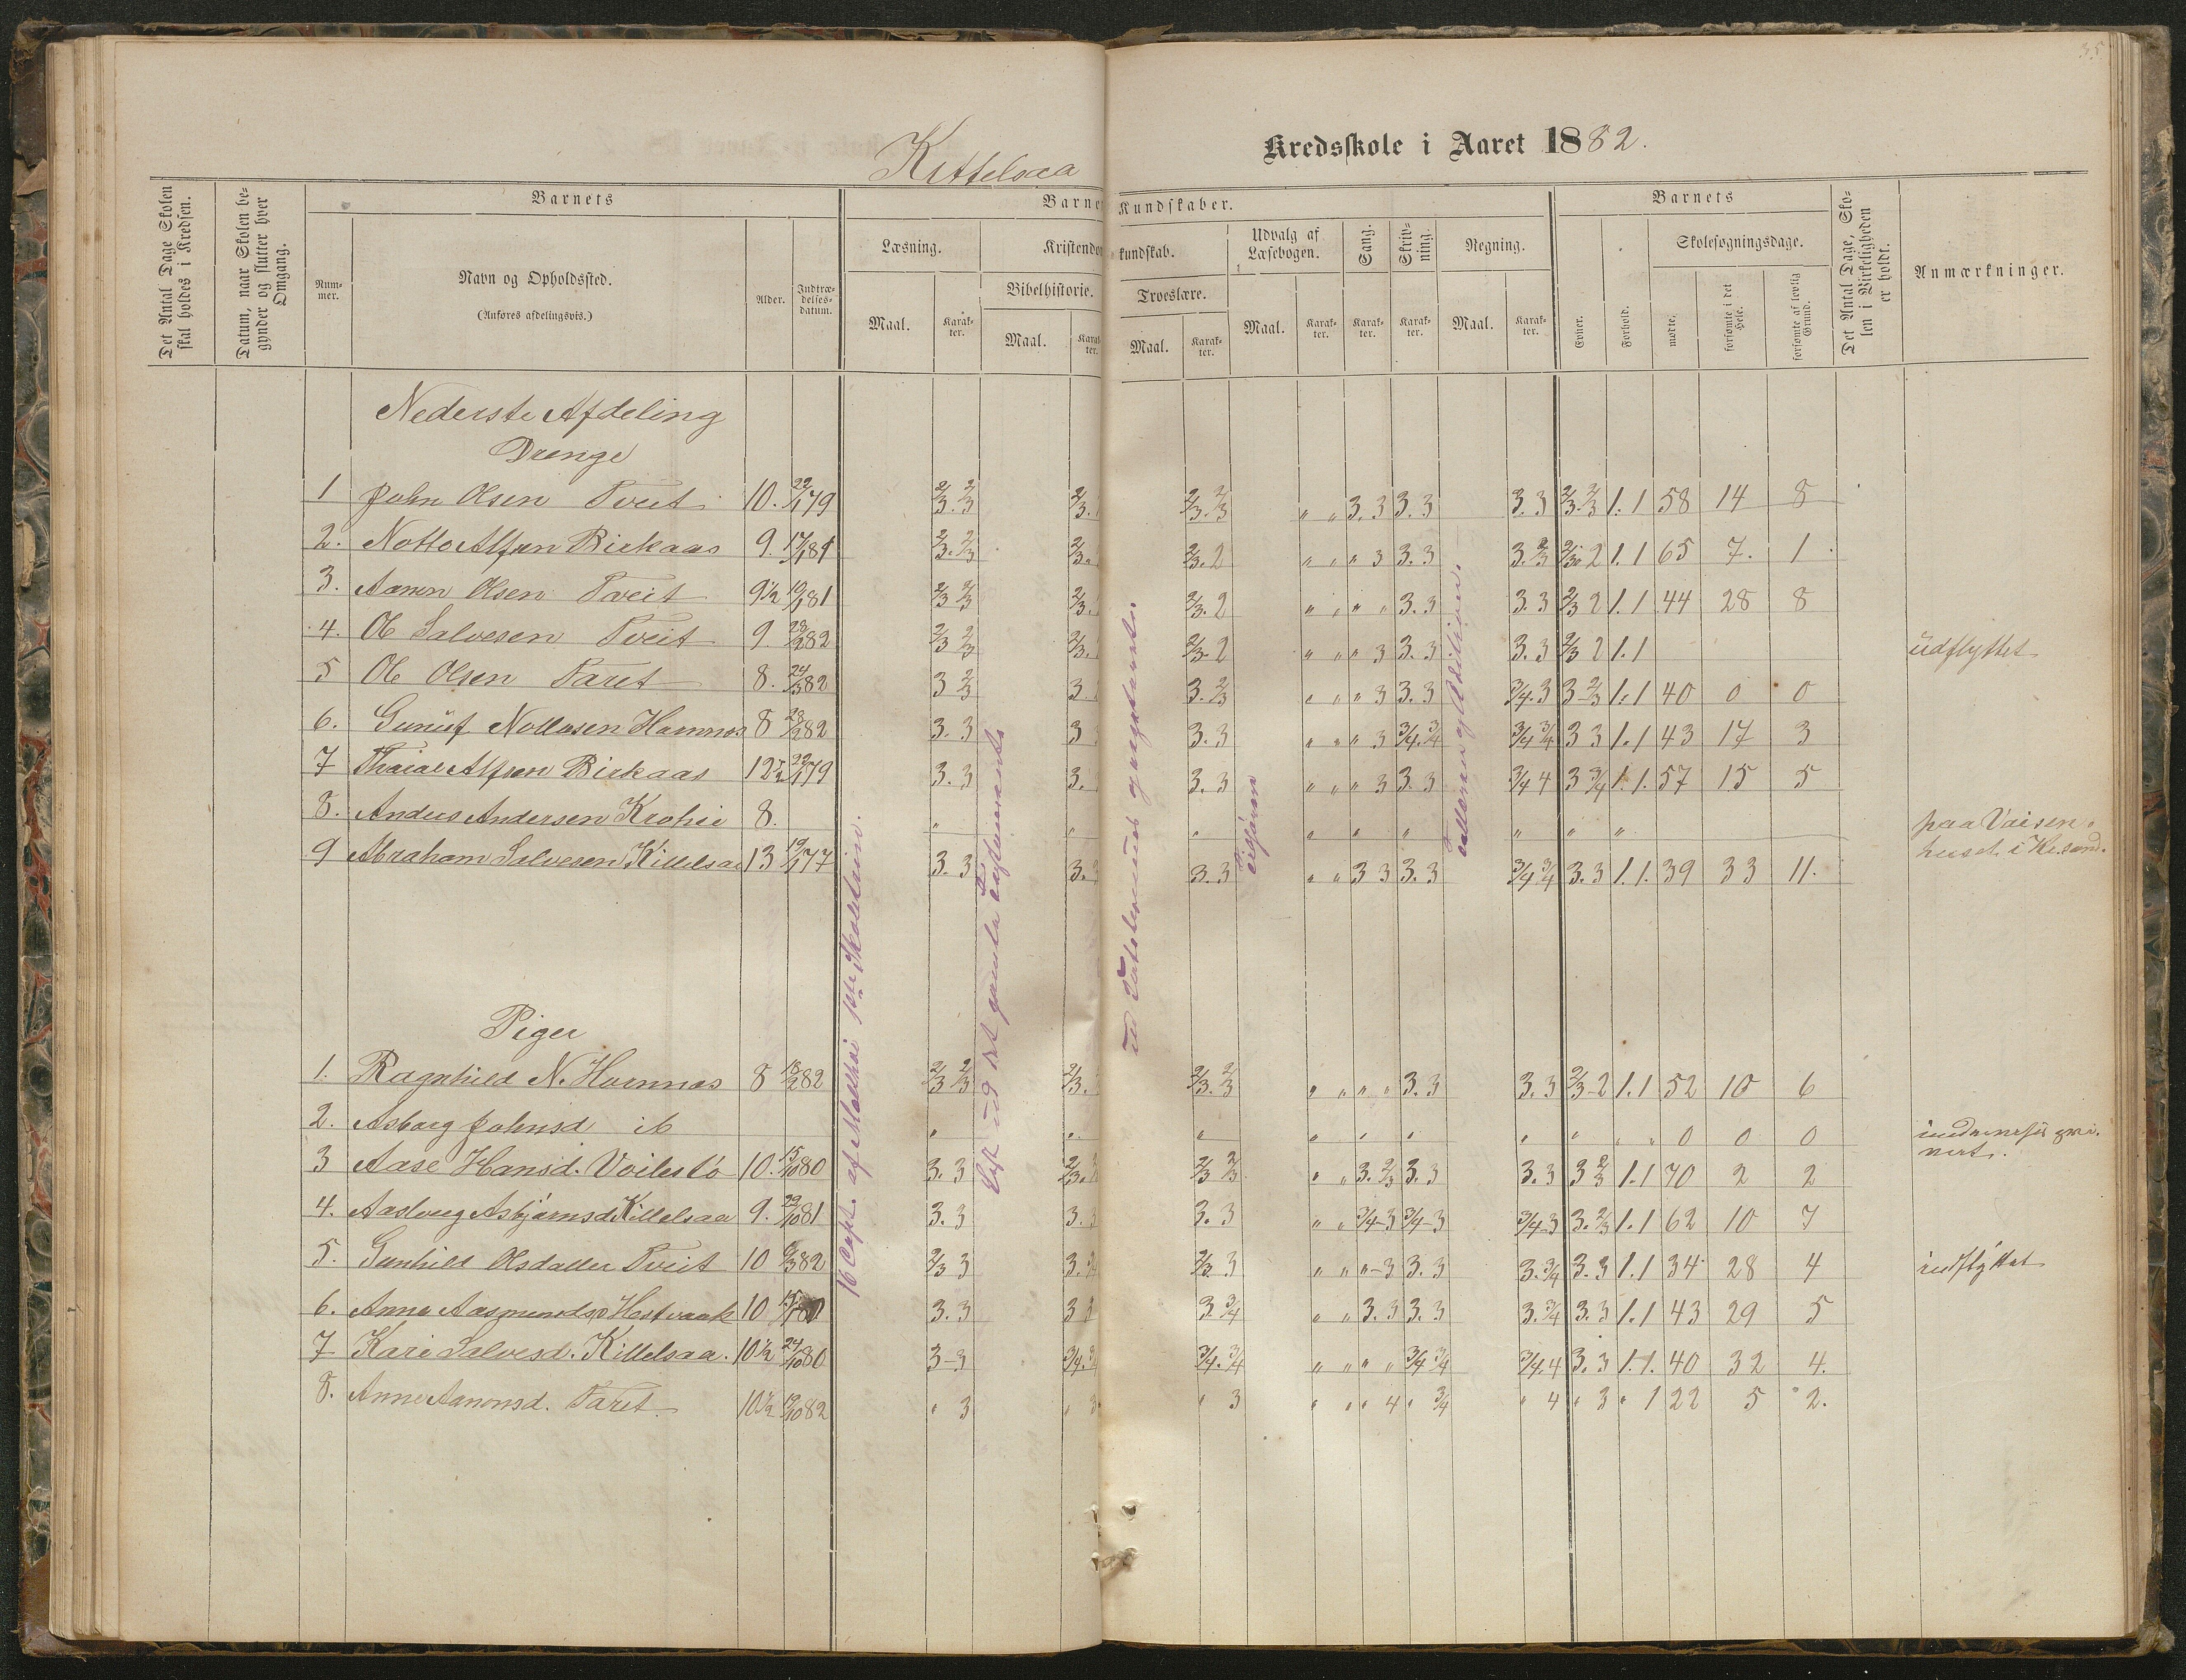 35
Kittelsaa Kredsskole i Aaret 1882.
Det Antal Dage Skolen skal holdes i Kredsen.
Datum, naar Skolen begynder og slutter hver Omgang.
Barnets
Nummer.
Navn og Opholdssted.
(Anføres afdelingsvis.)
Alder.
Indtrædelsesdatum.
Barne
Læsning.
Maal.
Karakter.
Kristendom
Bibelhistorie.
Maal.
Karakter.
Kundskaber.
kundskab.
Troeslære.
Maal.
Karakter.
Udvalg af Læsebogen.
Maal.
Karakter.
Sang.
Karakter.
Skrivning.
Karakter.
Regning.
Maal.
Karakter.
Barnets
Evner.
Forhold.
Skolesøgningsdage.
mødte.
forsømte i det Hele.
forsømte af lovlig Grund.
Det Antal Dage, Skolen i Virkeligheden er holdt.
Anmærkninger.
Nederste Afdeling
Drenge
1 John Olsen Tveit 10. 22/1 79 2/3. 2/3 2/3. 2/3. 2/3 " " 3. 3 3. 3 3. 3 2/3. 2/3 1. 1 58 14 8
2. Notto Alfsen Birkaas 9. 81 2/3. 2/3 2/3. 2/3. 2 " " " 3 3. 3 3. 2/3 2/3. 2 1. 1 65 7. 1
3. Aanen Olsen Tveit 9½ 19/1 81 2/3 2/3 2/3. 2/3. 2 " " " " 3. 3 3. 3 2/3 2 1. 1 44 28 8
4. Ole Salvesen Tveit 9 28/2 82 2/3 2/3 2/3. 2/3. 2 " " " 3 3. 3 3. 3 2/3 2 1. 1 udflyttet
5 Ole Olsen Taret 8. 24/3 82 3 2/3 3 3. 2/3 " " " 3 3. 3 3/4. 3 3-2/3 1. 1 40 0 0
6. Nottosen Hornnes 8 28/2 82 3. 3 3 3. 3 " " " 3 3/4. 3/4 3/4 3/4 3 3 1. 1 43 17 3
7 Alfsen Birkaas 12½ 22/1 79 3. 3 3. 3. 3 " " " 3 3. 3 3/4 4 3 3/4 1. 1. 57 15 5
8. Anders Andersen 8. " " " " " " " " " paa Vaisenhuset i Kr.sand.
9 Abraham Salvesen Kittelsaa 13 19/1 77 3. 3 3. 3. 3 " " 3 3 3. 3 3/4 3/4 3. 3 1. 1. 39 33 11.
Piger
1. Ragnhild N. Hornnes 8 18/2 82 2/3 2/3 2/3. 2/3. 2/3 " " " " 3. 3 3. 3 2/3-2 1. 1 52 10 6
2. Asborg Johnsd ib " " " " " " " " " " 0 0 0
3 Aase Hansd. 10. 15/10 80 3. 3 2/3. 2/3 2/3 " " 3. 2/3 3. 3 3. 3 3 2/3 1. 1 70 2 2
4. Aaslaug Asbjørnsd Kittelsaa 9. 29/10 81 3. 3 3. 3 3. 3 " " 3/4-3 3/4-3 3/4-3 3. 2/3 1. 1 62 10 7
5. Gunhild Olsdatter Tveit 10 82 2/3 3 3. 2/3. 3 " " "-3 3. 3 3. 3/4 3. 3 1. 1 34 28 4 indflyttet
6. Anne Aasmundsd 10 3. 3 3 3. 3/4 " " 3. 3 3. 3 3. 3/4 3. 3 1. 1 43 29 5
7 Kari Salvesd. Kittelsaa. 10½ 24/10 80 3-3 3/4. 3/4. 3/4 " " " " 3/4 3/4 3/4. 4 3. 3 1. 1. 40 32 4.
8. Anne Aanonsd. Taret. 10½ 19/10 82 " 3 " 3 " 3 " " " 4 " 3/4 " 4 " 3 " 1 22 5 2.
16 Capt. af
ud det gamle Testamente
og Addition.